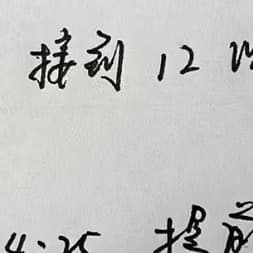 接到 12
4.25 提前